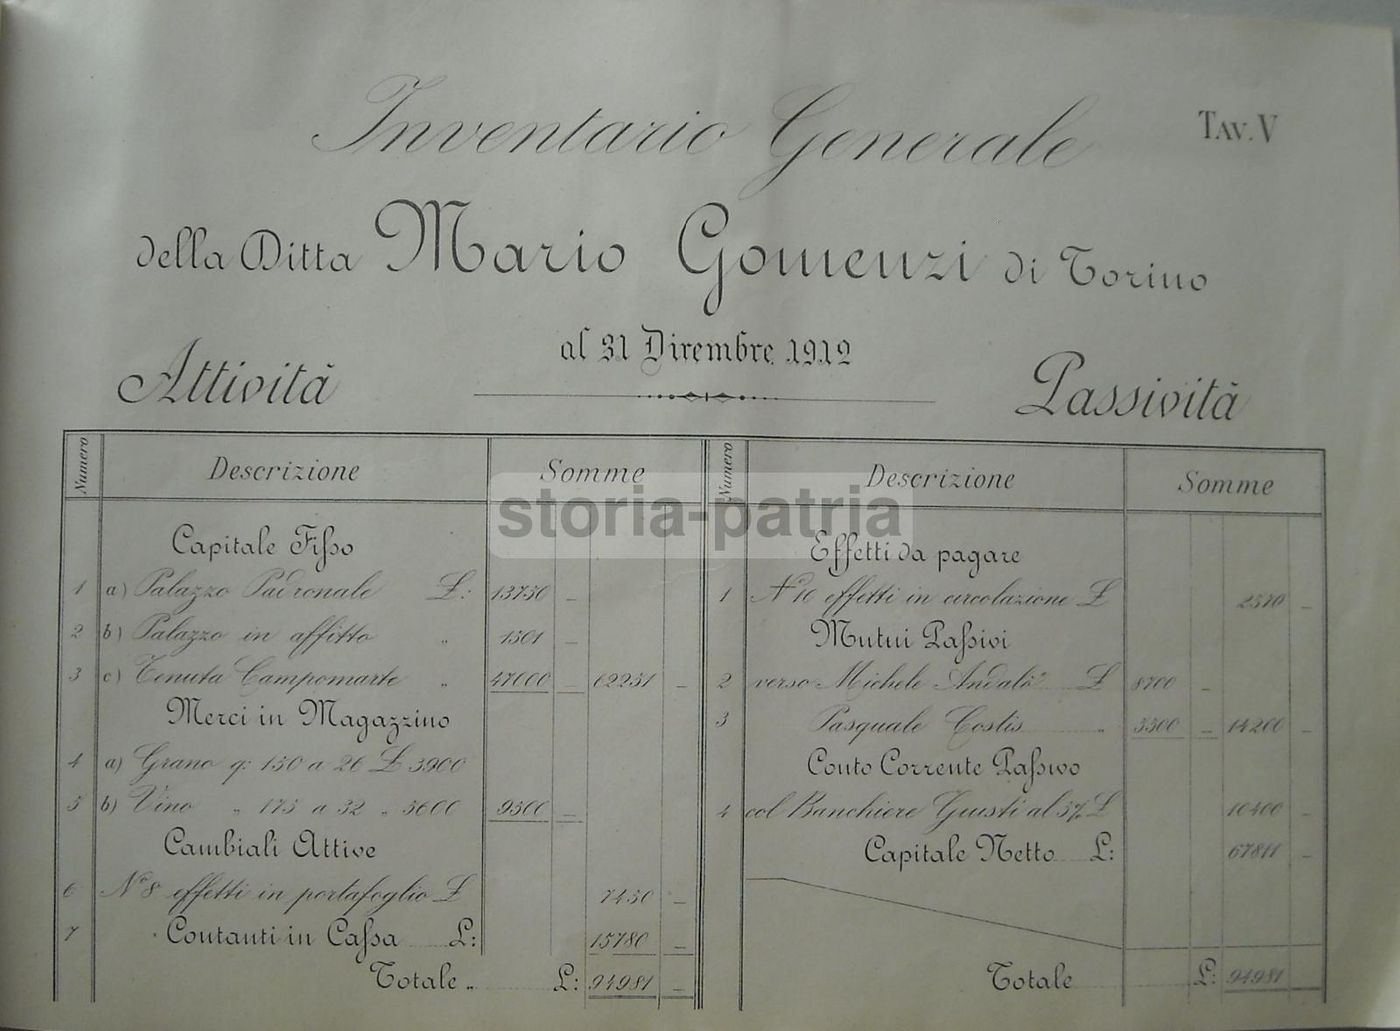 Inventario Generale
Tav. V
della Ditta Mario Gomenzi di Torino
al 31 Dicembre 1912
Attività
Passività
Numero Descrizione Somme
Capitale Fisso
1 a) Palazzo Padronale £: 13750 –
2 b) Palazzo in affitto „ 1501 –
3 c) Tenuta Campomarte „ 47000 – 62251 –
Merci in Magazzino
4 a) Grano q: 150 a 26 £ 3900
5 b) Vino „ 175 a 32 „ 5600 9500 –
Cambiali Attive
6 N° 8 effetti in portafoglio £ 7450 –
7 Contanti in Cassa £: 15780 –
Totale „ £: 94981 –
Numero Descrizione Somme
Effetti da pagare
1 N° 10 effetti in circolazione £ 2570 –
Mutui Passivi
2 verso Michele Andalò £ 8700 –
3 Pasquale Costis „ 5500 – 14200 –
Conto Corrente Passivo
4 col Banchiere Giusti al 5% £ 10400 –
Capitale Netto £: 67811 –
Totale £: 94981
storia-patria